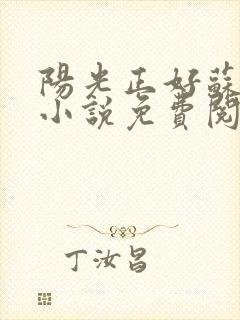 陽光正好蘇
小說免費閱
丁汝昌